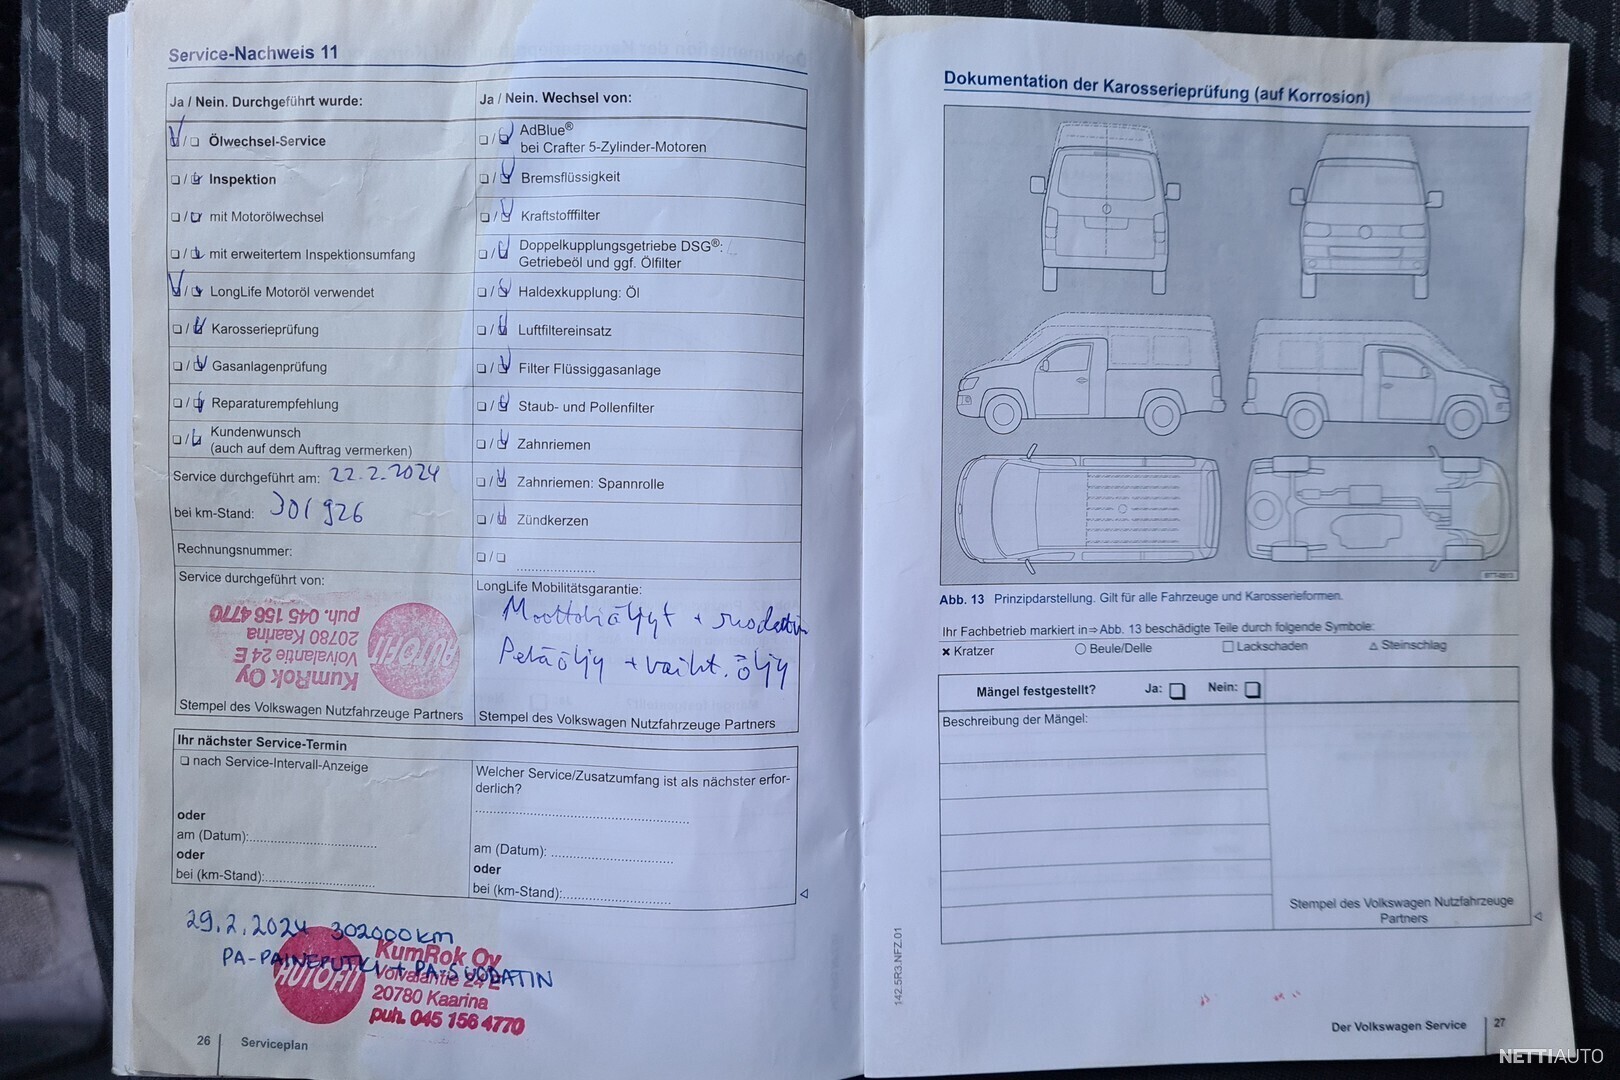 Service-Nachweis 11
Ja / Nein. Durchgeführt wurde:
Ölwechsel-Service
Inspektion
mit Motorölwechsel
mit erweitertem Inspektionsumfang
LongLife Motoröl verwendet
Karosserieprüfung
Gasanlagenprüfung
Reparaturempfehlung
Kundenwunsch
(auch auf dem Auftrag vermerken)
Service durchgeführt am: 22.2.2024
bei km-Stand: 301 926
Rechnungsnummer:
Service durchgeführt von:
AUTOFIT
KumRok Oy
Volvalantie 24 E
20780 Kaarina
puh. 045 156 4770
Stempel des Volkswagen Nutzfahrzeuge Partners
Ja / Nein. Wechsel von:
AdBlue®
bei Crafter 5-Zylinder-Motoren
Bremsflüssigkeit
Kraftstofffilter
Doppelkupplungsgetriebe DSG®:
Getriebeöl und ggf. Ölfilter
Haldexkupplung: Öl
Luftfiltereinsatz
Filter Flüssiggasanlage
Staub- und Pollenfilter
Zahnriemen
Zahnriemen: Spannrolle
Zündkerzen
LongLife Mobilitätsgarantie:
Moottoriöljyt + suodatin
Peräöljy + vaiht. öljy
Stempel des Volkswagen Nutzfahrzeuge Partners
Ihr nächster Service-Termin
nach Service-Intervall-Anzeige
oder
am (Datum):
oder
bei (km-Stand):
Welcher Service/Zusatzumfang ist als nächster erfor-
derlich?
am (Datum):
oder
bei (km-Stand):
29.2.2024 302000 km
PA-PAINEPUTKI + PA-SUODATIN
AUTOFIT
KumRok Oy
Volvalantie 24 E
20780 Kaarina
puh. 045 156 4770
26 Serviceplan
Dokumentation der Karosserieprüfung (auf Korrosion)
Abb. 13 Prinzipdarstellung. Gilt für alle Fahrzeuge und Karosserieformen.
Ihr Fachbetrieb markiert in ⇒ Abb. 13 beschädigte Teile durch folgende Symbole:
× Kratzer ○ Beule/Delle □ Lackschaden △ Steinschlag
Mängel festgestellt? Ja: Nein:
Beschreibung der Mängel:
Stempel des Volkswagen Nutzfahrzeuge
Partners
142.5R3.NFZ.01
Der Volkswagen Service 27
NETTIAUTO